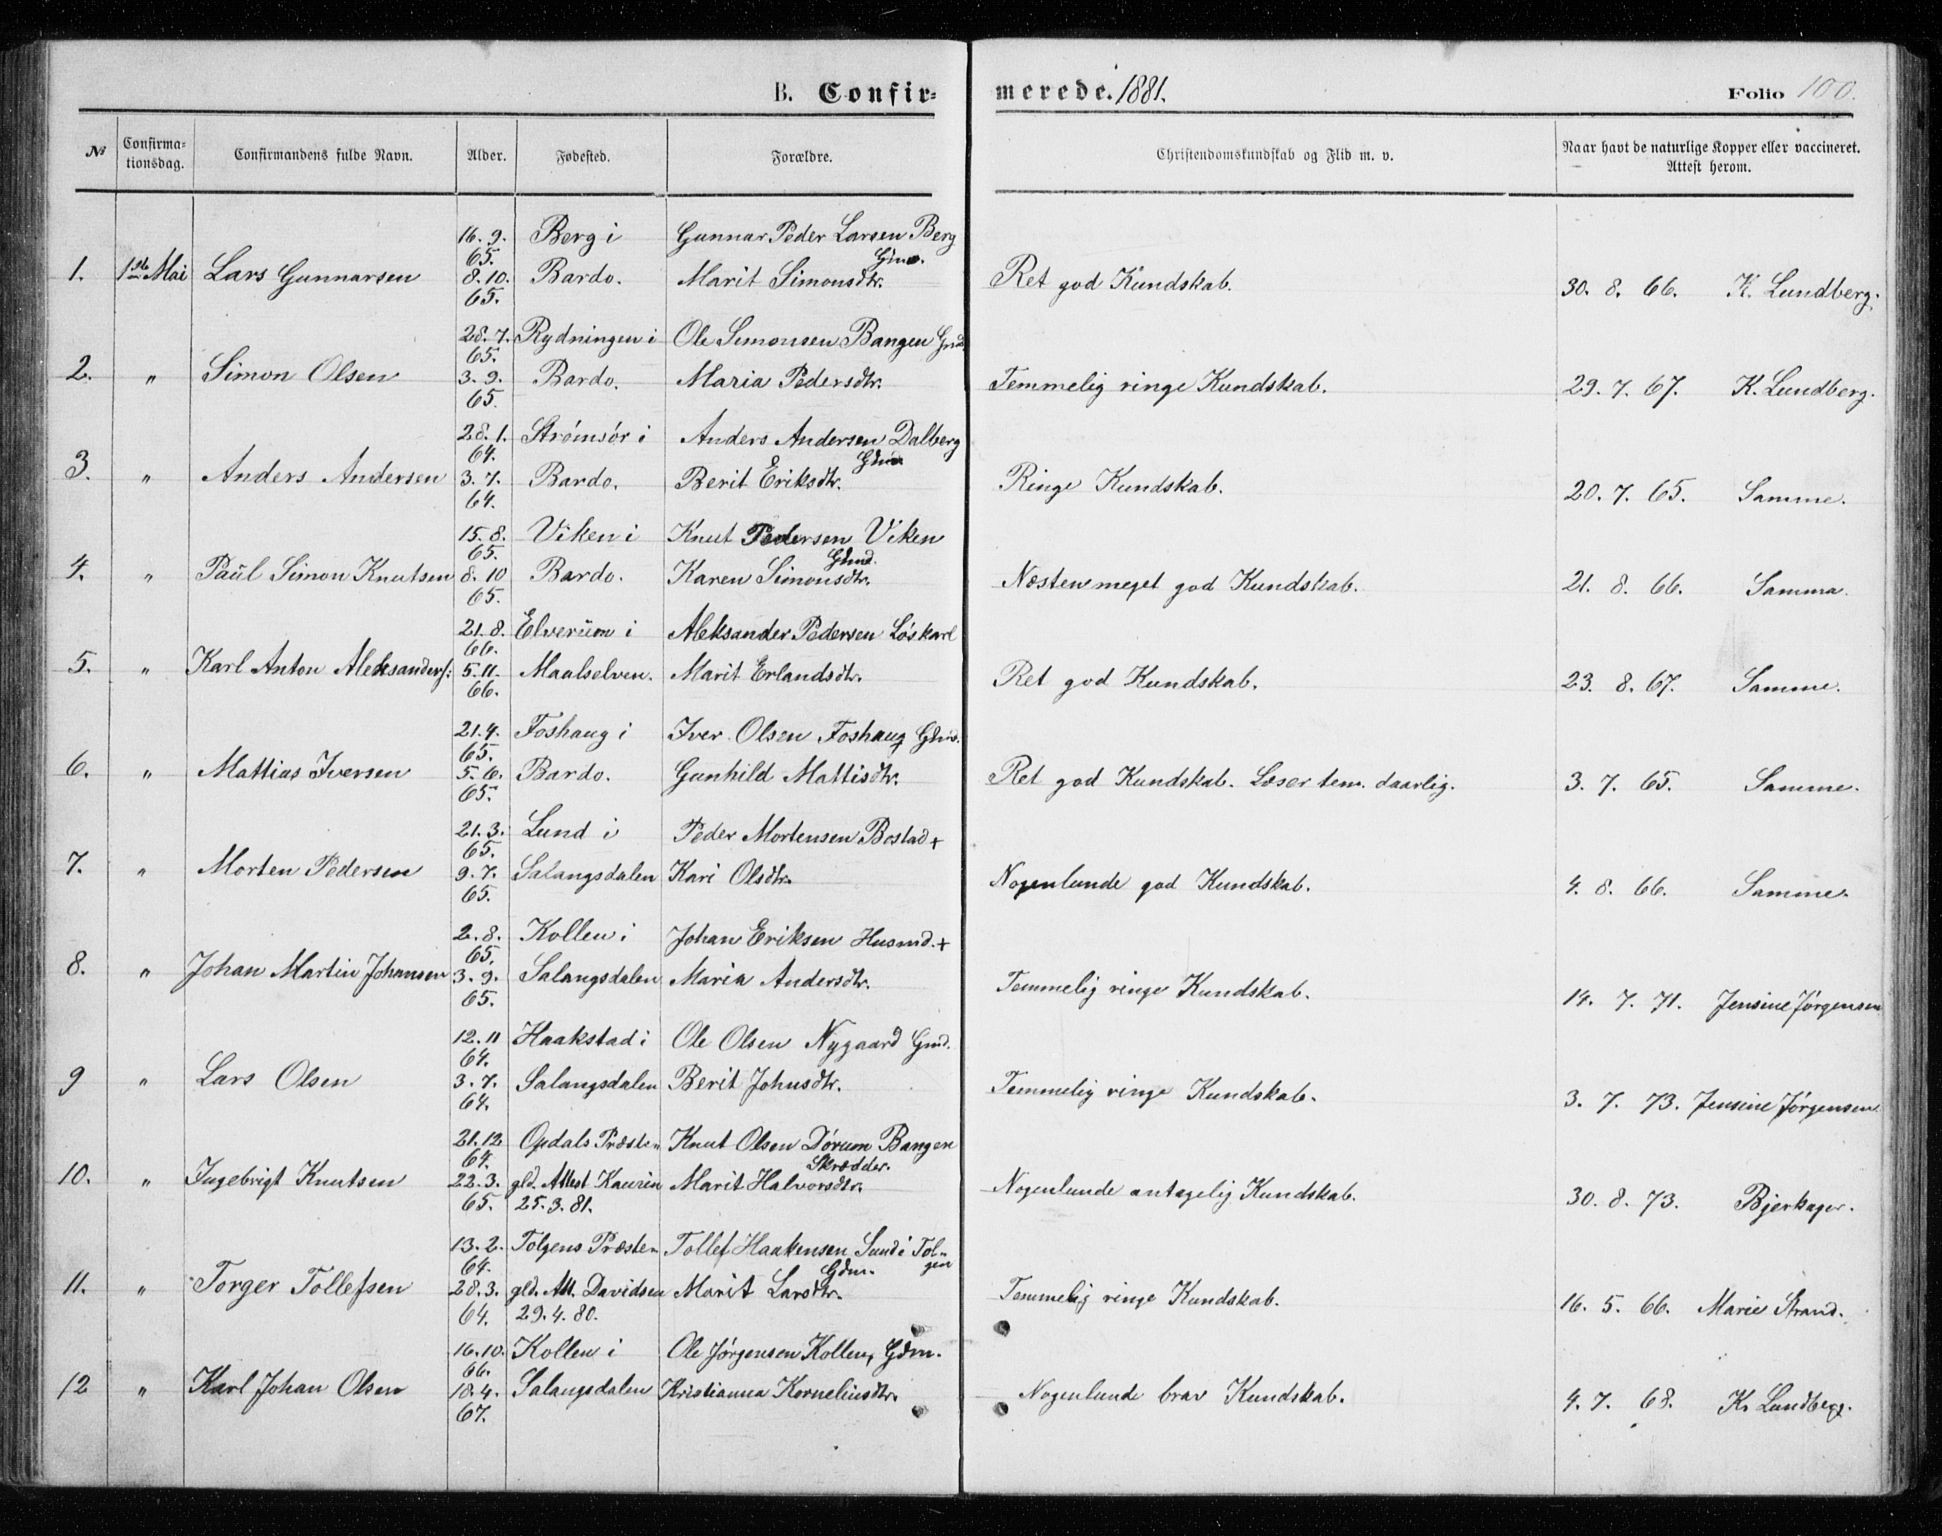 B. Confir-
merede. 1881.
Folio 100.
№
Confirma-
tionsdag.
Confirmandens fulde Navn.
Alder.
Fødested.
Forældre.
Christendomskundskab og Flid m. v.
Naar havt de naturlige Kopper eller vaccineret.
Attest herom.
16. 9. Berg i Gunnar Peder Larsen Berg
65.
1. 1ste Mai Lars Gunnarsen 8. 10. Bardo. Marit Simonsdtr. Ret god Kundskab. 30. 8. 66. K. Lundberg.
65.
28. 7. Rydningen i Ole Simonsen Bangen
65.
2. " Simon Olsen 3. 9. Bardo. Maria Pedersdtr. Temmelig ringe Kundskab. 29. 7. 67. K. Lundberg.
65.
28. 1. Strømsør i Anders Andersen Dalberg
64.
3. " Anders Andersen 3. 7. Bardo. Berit Eriksdtr. Ringe Kundskab. 20. 7. 65. Samme.
64.
15. 8. Viken i Knut Pedersen Viken
65. Gdmd.
4. " Paul Simon Knutsen 8. 10 Bardo. Karen Simonsdtr. Næsten meget god Kundskab. 21. 8. 66. Samma.
65.
21. 8. Elverum i Aleksander Pedersen Løskarl
66.
5. " Karl Anton Aleksanders: 5. 11. Maalselven. Marit Erlandsdtr. Ret god Kundskab. 23. 8. 67. Samme.
66.
21. 4. Foshaug i Iver Olsen Foshaug Gdmd.
65.
6. " Mattias Iversen 5. 6. Bardo. Gunhild Mattisdtr. Ret god Kundskab. Læser tem. daarlig. 3. 7. 65. Samme.
65.
21. 3. Lund i Peder Mortensen Bostad +
65.
7. " Morten Pedersen 9. 7. Salangsdalen Kari Olsdtr. Nogenlunde god Kundskab. 4. 8. 66. Samme.
65.
2. 8. Kollen i Johan Eriksen Husmd. +
65.
8. " Johan Martin Johansen 3. 9. Salangsdalen Maria Andersdtr. Temmelig ringe Kundskab. 14. 7. 71. Jensine Jørgensen
65.
12. 11 Haakstad i Ole Olsen Nygaard Gmd.
64.
9 " Lars Olsen 3. 7. Salangsdalen Berit Johnsdtr. Temmelig ringe Kundskab. 3. 7. 73. Jensine Jørgensen
64.
21. 12 Opdals Præste" Knut Olsen Dørum Bangen
64. Skrædder.
10. " Ingebrigt Knutsen 22. 3. gld. Attest Kaurin Marit Halvorsdtr. Nogenlunde antagelig Kundskab. 30. 8. 73. Bjerkager.
65. 25. 3. 81.
13. 2. Tolgens Præste" Tollef Haakensen Sund i Tol-
64. Gdm. gen
11. " Torger Tollefsen 28. 3. gld. Att. Davidsen Marit Larsdtr. Temmelig ringe Kundskab. 16. 5. 66. Marie Strand.
64. 29. 4. 80.
16. 10. Kollen i Ole Jørgensen Kollen, Gdm.
66.
12 " Karl Johan Olsen 18. 4. Salangsdalen Kristianna Korneliusdtr. Nogenlunde brav Kundskab. 4. 7. 68. K. Lundberg.
67.